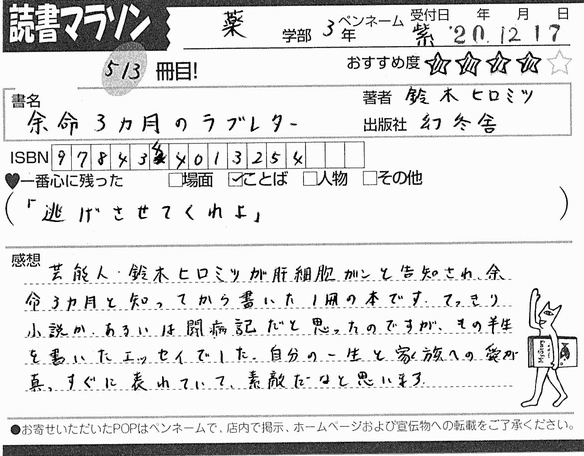 読書マラソン
薬 学部 3年 ペンネーム 紫 受付日 '20年 12月 17日
513 冊目!
おすすめ度 ★★★★☆
書名
余命3カ月のラブレター
著者 鈴木ヒロミツ
出版社 幻冬舎
ISBN 9784344013254
♥一番心に残った □場面 ☑ことば □人物 □その他
(「逃げさせてくれよ」)
感想
芸能人・鈴木ヒロミツが肝細胞ガンと告知され、余
命3カ月と知ってから書いた1冊の本です。てっきり
小説か、あるいは闘病記だと思ったのですが、その半生
を書いたエッセイでした。自分の一生と家族への愛が
真っすぐに表れていて、素敵だなと思います。
●お寄せいただいたPOPはペンネームで、店内で掲示、ホームページおよび宣伝物への転載をご了承ください。